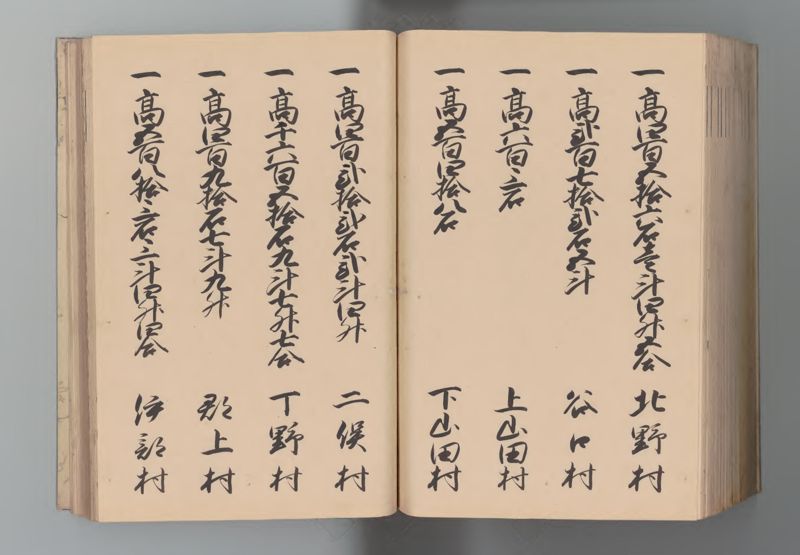 一高四百五拾六石壱斗四升五合 北野村
一高弐百七拾弐石五斗 谷口村
一高六百三石 上山田村
一高五百四拾八石 下山田村
一高四百弐拾弐石弐斗四升 二俣村
一高千六百五拾石九斗七升七合 丁野村
一高四百九拾石七斗九升 郡上村
一高五百八拾三石三斗四升四合 伊部村